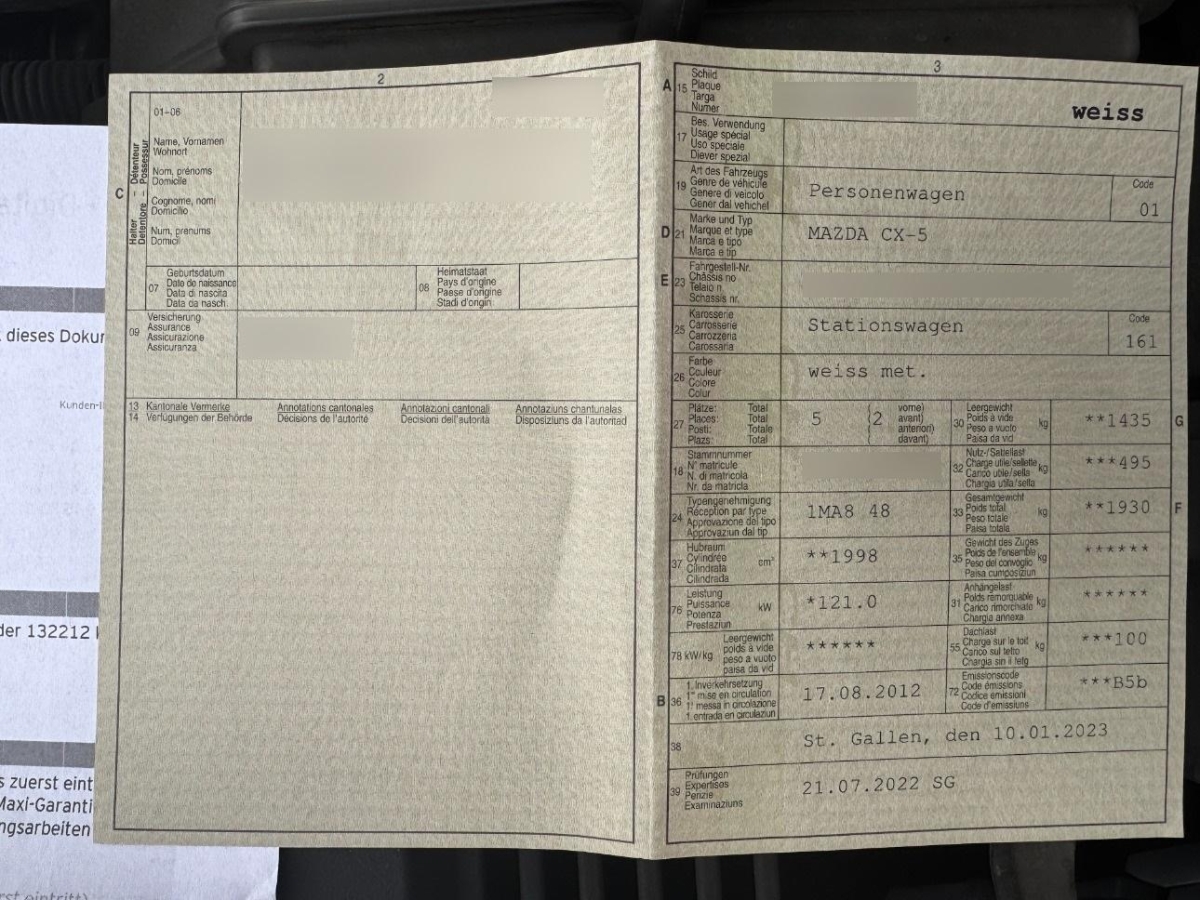 2
01-06
C
Halter – Détenteur
Detentore – Possessur
Name, Vornamen
Wohnort
Nom, prénoms
Domicile
Cognome, nomi
Domicilio
Num, prenums
Domicil
07
Geburtsdatum
Date de naissance
Data di nascita
Data da nasch.
08
Heimatstaat
Pays d'origine
Paese d'origine
Stadi d'origin
09
Versicherung
Assurance
Assicurazione
Assicuranza
13 Kantonale Vermerke Annotations cantonales Annotazioni cantonali Annotaziuns chantunalas
14 Verfügungen der Behörde Décisions de l'autorité Decisioni dell'autorità Disposiziuns da l'autoritad
3
A 15
Schild
Plaque
Targa
Numer
weiss
17
Bes. Verwendung
Usage spécial
Uso speciale
Diever spezial
19
Art des Fahrzeugs
Genre de véhicule
Genere di veicolo
Gener dal vehichel
Personenwagen
Code
01
D 21
Marke und Typ
Marque et type
Marca e tipo
Marca e tip
MAZDA CX-5
E 23
Fahrgestell-Nr.
Châssis no
Telaio n.
Schassis nr.
25
Karosserie
Carrosserie
Carrozzeria
Carossaria
Stationswagen
Code
161
26
Farbe
Couleur
Colore
Colur
weiss met.
27
Plätze: Total
Places: Total
Posti: Totale
Plazs: Total
5
2
vorne)
avant)
anteriori)
davant)
30
Leergewicht
Poids à vide
Peso a vuoto
Paisa da vid
kg
**1435
G
18
Stammnummer
N° matricule
N. di matricola
Nr. da matricla
32
Nutz-/Sattellast
Charge utile/sellette
Carico utile/sella
Chargia utila/sella
kg
***495
24
Typengenehmigung
Réception par type
Approvazione del tipo
Approvaziun dal tip
1MA8 48
33
Gesamtgewicht
Poids total
Peso totale
Paisa totala
kg
**1930
F
37
Hubraum
Cylindrée
Cilindrata
Cilindrada
cm³
**1998
35
Gewicht des Zuges
Poids de l'ensemble
Peso del convoglio
Paisa cumposiziun
kg
******
76
Leistung
Puissance
Potenza
Prestaziun
kW
*121.0
31
Anhängelast
Poids remorquable
Carico rimorchiato
Chargia annexa
kg
******
78 kW/kg
Leergewicht
poids à vide
peso a vuoto
paisa da vid
******
55
Dachlast
Charge sur le toit
Carico sul tetto
Chargia sin il tetg
kg
***100
B 36
1. Inverkehrsetzung
1re mise en circulation
1a messa in circolazione
1. entrada en circulaziun
17.08.2012
72
Emissionscode
Code émissions
Codice emissioni
Code d'emissiuns
***B5b
38
St. Gallen, den 10.01.2023
39
Prüfungen
Expertises
Perizie
Examinaziuns
21.07.2022 SG
dieses Dokur
Kunden-I
der 132212
s zuerst eint
Maxi-Garanti
ngsarbeiten
rst eintritt)